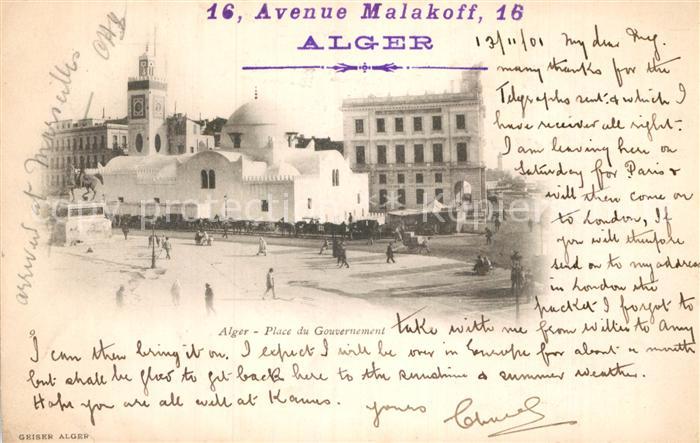 16, Avenue Malakoff, 16
ALGER
13/11/01 My dear Meg.
many thanks for the
Telegraphs sent & which I
have received all right.
I am leaving here on
Saturday for Paris &
will then come on
to London, If
you will therefore
send on to my address
in London the
packet I forgot to
take with me from Willie to Amy
I can then bring it on. I expect I will be over in Europe for about a month
but shall be glad to get back here to the sunshine & summer weather.
Hope you are all well at
yours
arrived at Marseilles
Alger - Place du Gouvernement
GEISER ALGER